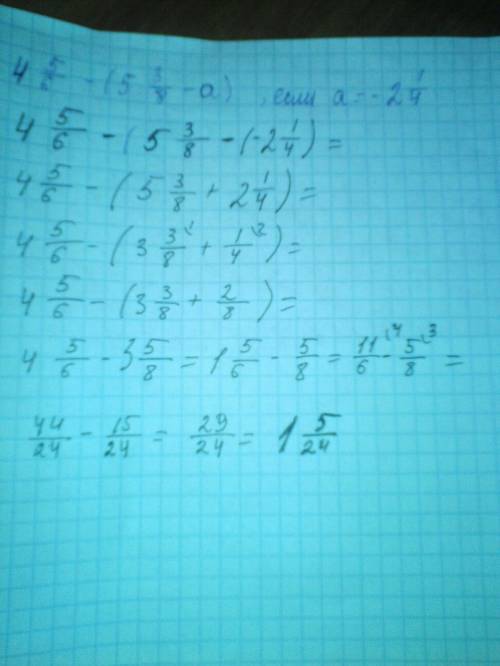 4 5/6 - (5 3/8 - a) , если a = -2 1/4
4 5/6 - (5 3/8 - (-2 1/4) =
4 5/6 - (5 3/8 + 2 1/4) =
4 5/6 - (3 3/8 \1 + 1/4 \2) =
4 5/6 - (3 3/8 + 2/8) =
4 5/6 - 3 5/8 = 1 5/6 - 5/8 = 11/6 \4 - 5/8 \3 =
44/24 - 15/24 = 29/24 = 1 5/24